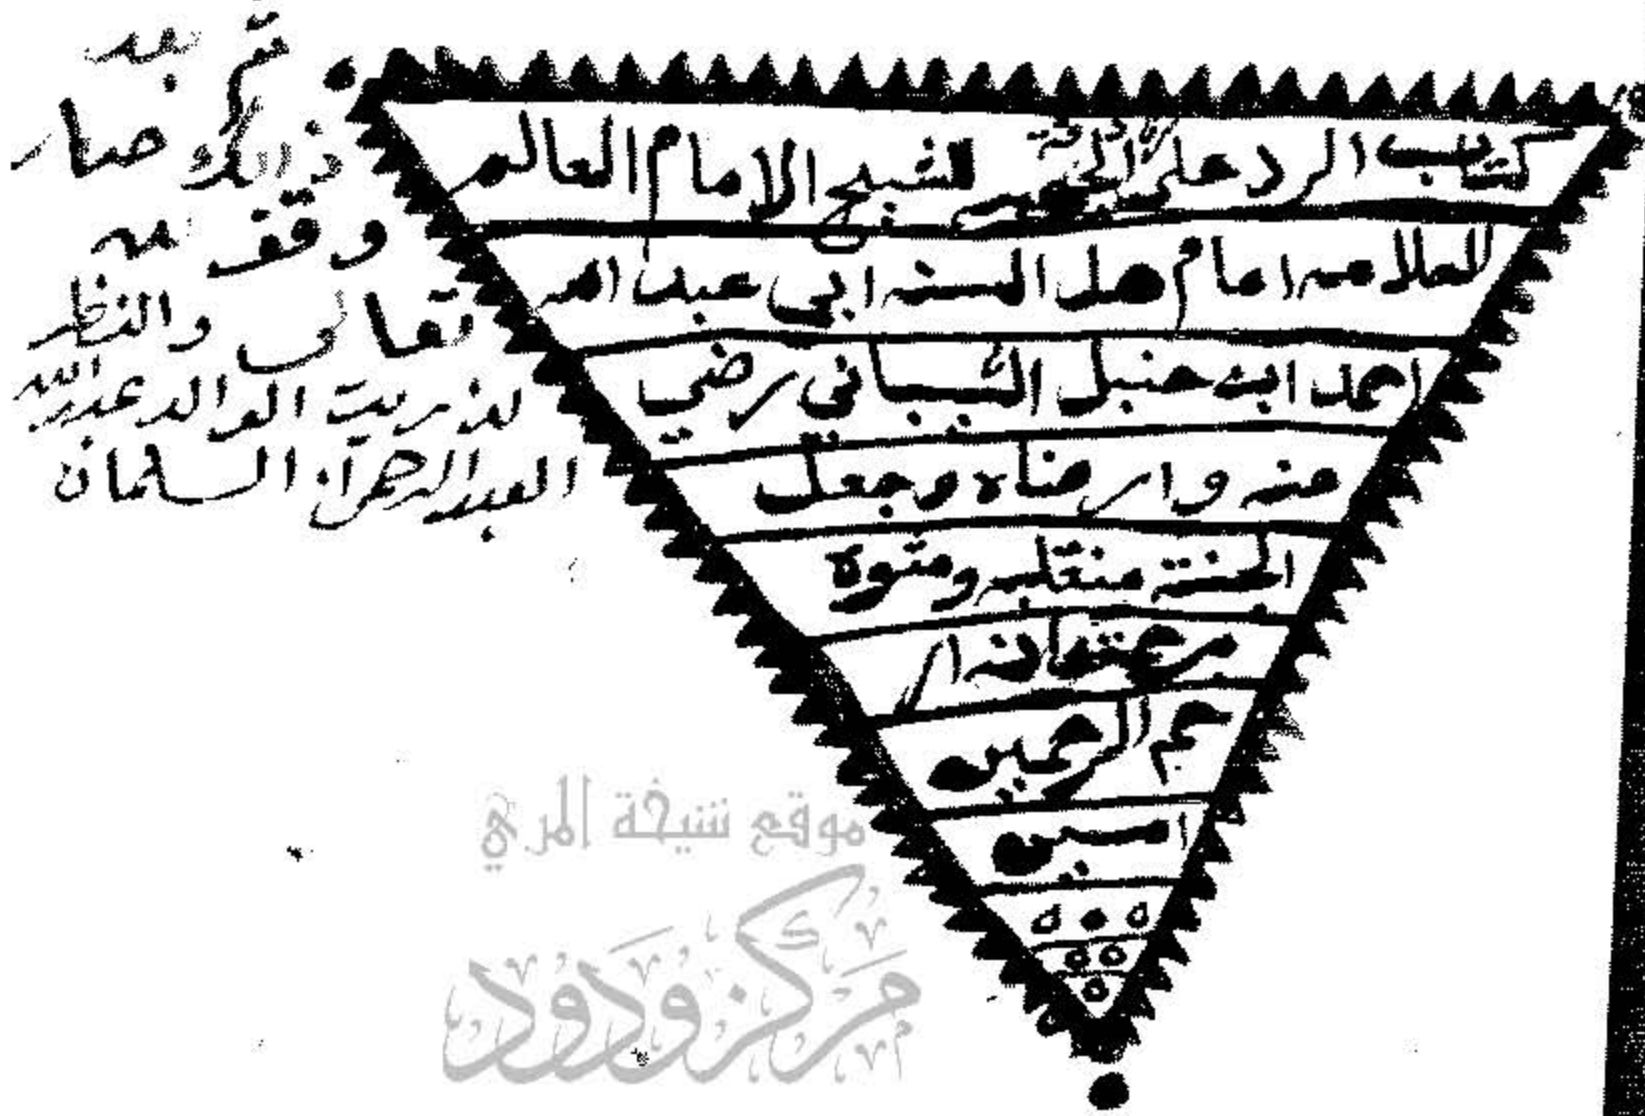 كتاب الرد على الزنادقة الجهمية للشيخ الامام العالم
العلامه امام هل السنه ابي عبد الله
احمد ابن حنبل الشيباني رضي
عنه وارضاه وجعل
الجنة منقلبه ومثوه
برحمته انه ار
حم الرحمين
امين
ثم بعد
ذالك صار
وقف لله
تعالى والنظر
لذريت الوالد عبد الله
العبد الرحمن السلمان
موقع شيخة المري
مركز ودود